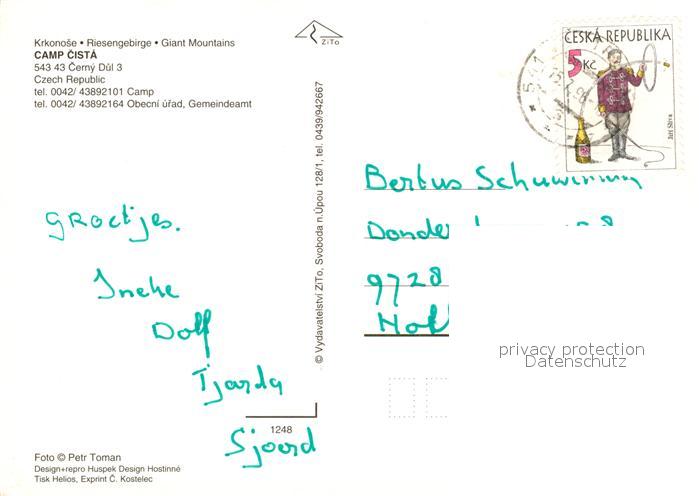 Krkonoše • Riesengebirge • Giant Mountains
CAMP ČISTÁ
543 43 Černý Důl 3
Czech Republic
tel. 0042/ 43892101 Camp
tel. 0042/ 43892164 Obecní úřad, Gemeindeamt
ZiTo
ČESKÁ REPUBLIKA
5 Kč
© Vydavatelství ZiTo, Svoboda n.Úpou 128/1, tel. 0439/942667
Groetjes.
Ineke
Dolf
Tjarda
Sjoerd
Bertus
9728
privacy protection
Datenschutz
1248
Foto © Petr Toman
Design+repro Huspek Design Hostinné
Tisk Helios, Exprint Č. Kostelec